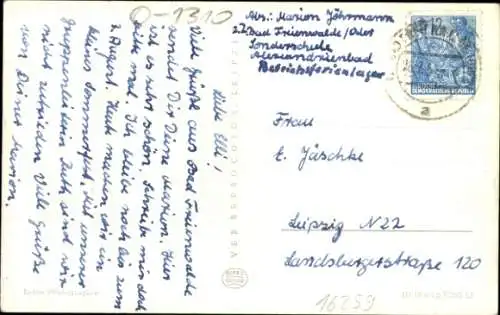 O-1310
Liebe Elli!
Viele Grüße aus Bad Freienwalde
sendet Dir Deine Marion. Hier
ist es sehr schön. Schreib mir doch
bitte mal. Ich bleibe noch bis zum
2. August. Heute machen wir ein
kleines Sommerfest. Mit unserer
Gruppenleiterin Ruth sind wir
nicht zufrieden. Viele Grüße
von Deiner Marion.
Abs.: Marion Jöhrmann
z.Z. Bad Freienwalde/Oder
Sonderschule
Alexandrinenbad
Betriebsferienlager
DEUTSCHE DEMOKRATISCHE REPUBLIK
a
Frau
E. Jäschke
Leipzig N22
Landsbergerstraße 120
16259